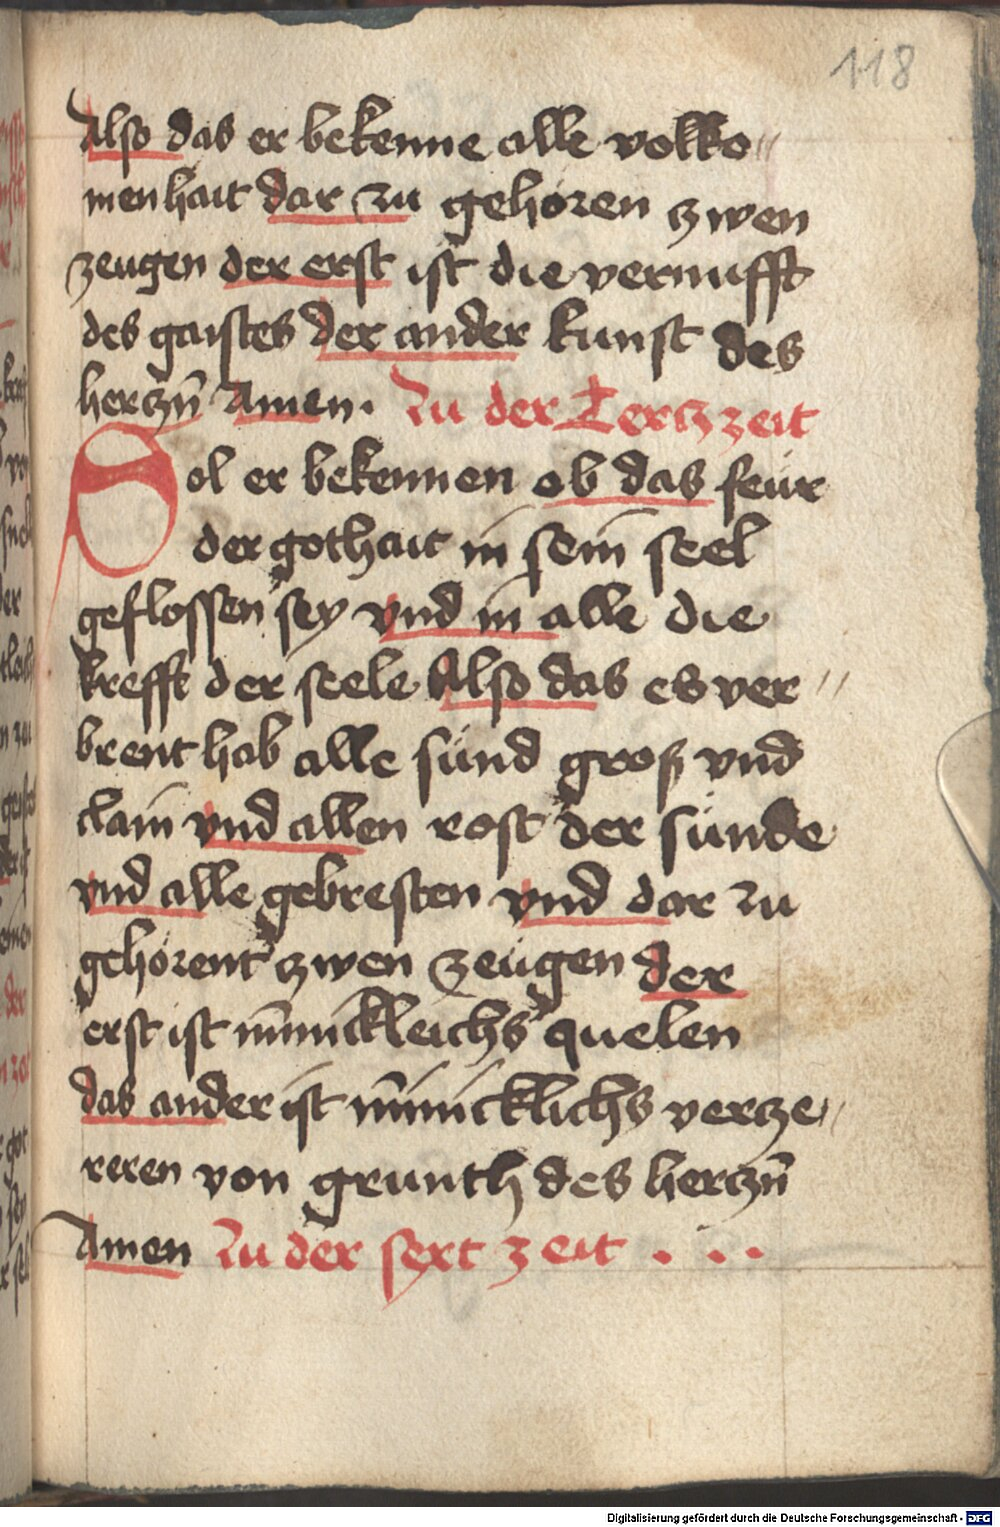 118
Also das er bekenne alle volko〃
menhait dar zu gehören zwen
zeugen der erst ist die vernufft
des gaistes der ander kunst des
herczn̄ Amen. Zu der Tercz zeit
Sol er bekennen ob das feür
der gothait in sein seel
geflossen sey vnd in alle die
krefft der seele Also das es ver〃
brent hab alle sünd groß vnd
clain vnd allen rost der sünde
vnd alle gebresten vnd dar zu
gehörent zwen zeügen der
erst ist īnnickleichs quelen
das ander ist īnnicklichs vercze〃
reren von grunth des herczn̄
Amen Zu der sext zeit . . .
Digitalisierung gefördert durch die Deutsche Forschungsgemeinschaft - DFG